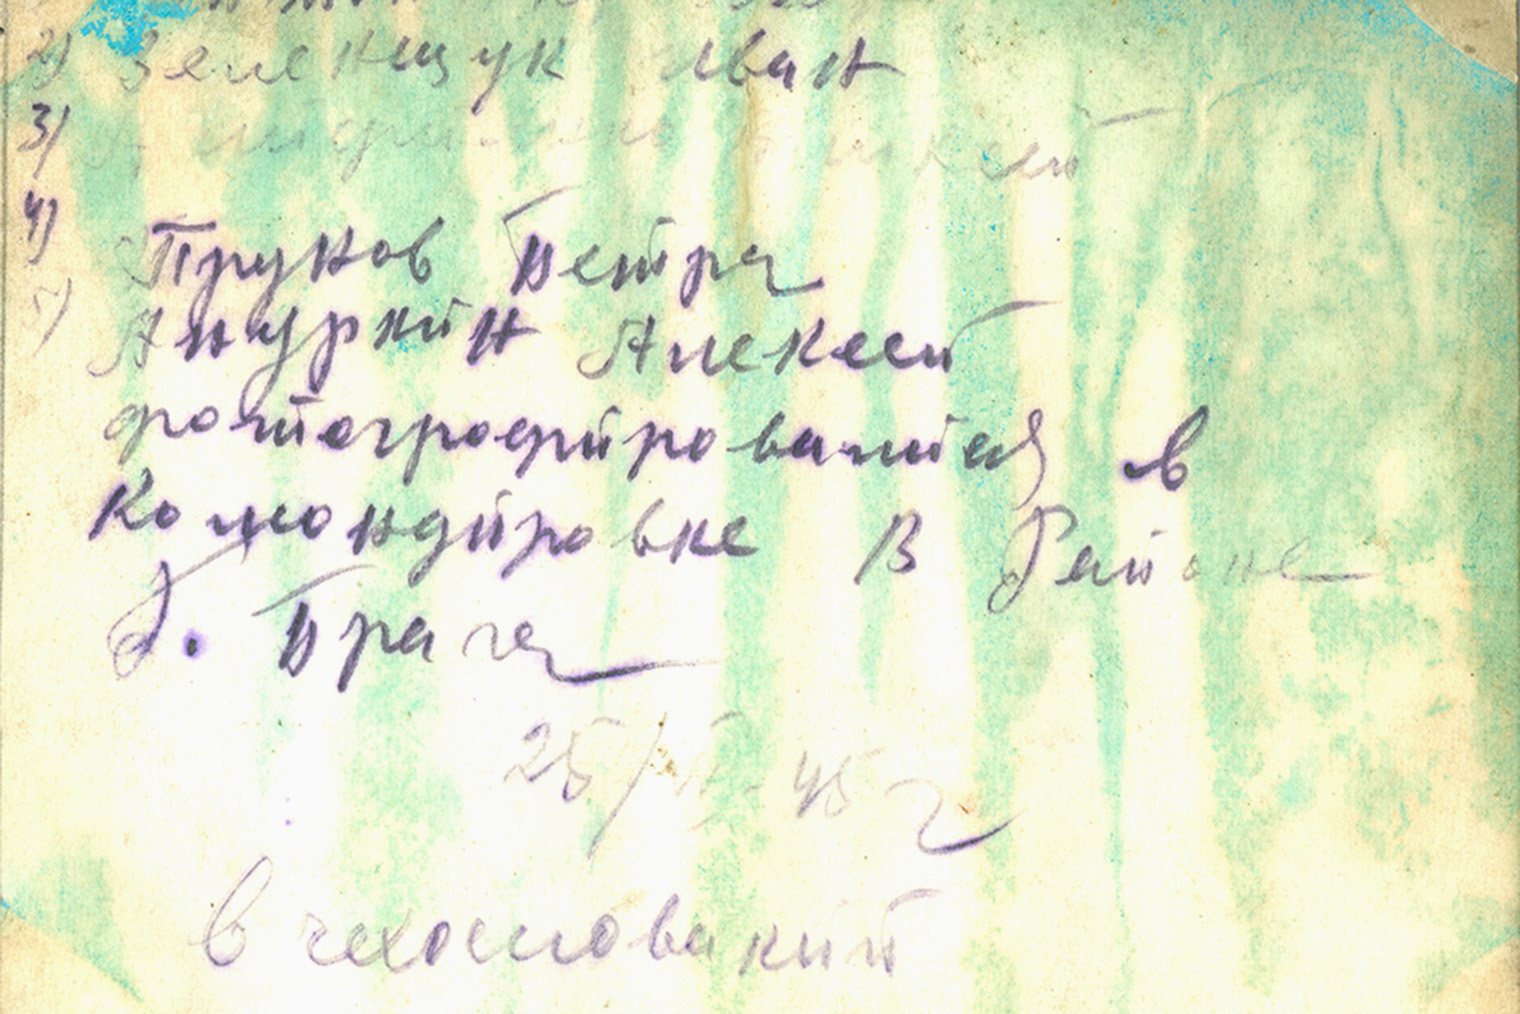 2) Зеленщук Иван
3)
4) Пруков Петра
5) Ануркин Алексей
фотогрофировались в
Комондировке В Районе
г. Прага
25/ 45 г
В чехословакий